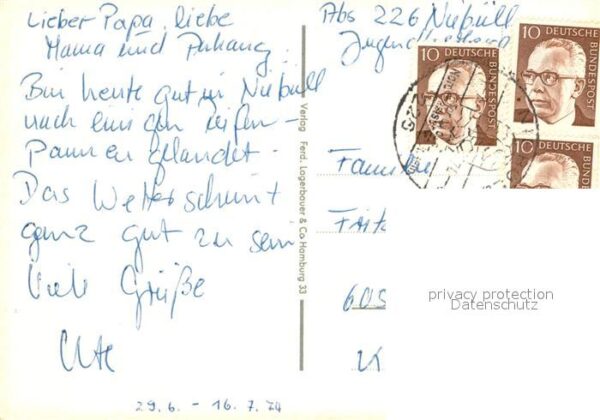 Lieber Papa, liebe
Mama und Anhang.
Bin heute gut in Niebüll
nach einigen Reifen-
Pannen gelandet.
Das Wetter scheint
ganz gut zu sein
Viele Grüße
Ute
29.6. - 16.7.74
Verlag Ferd. Lagerbauer & Co Hamburg 33
Abs 226 Niebüll
10 DEUTSCHE BUNDESPOST
10 DEUTSCHE BUNDESPOST
10 DEUTSCHE BUNDES
Familie
Fritz
605
K
privacy protection
Datenschutz